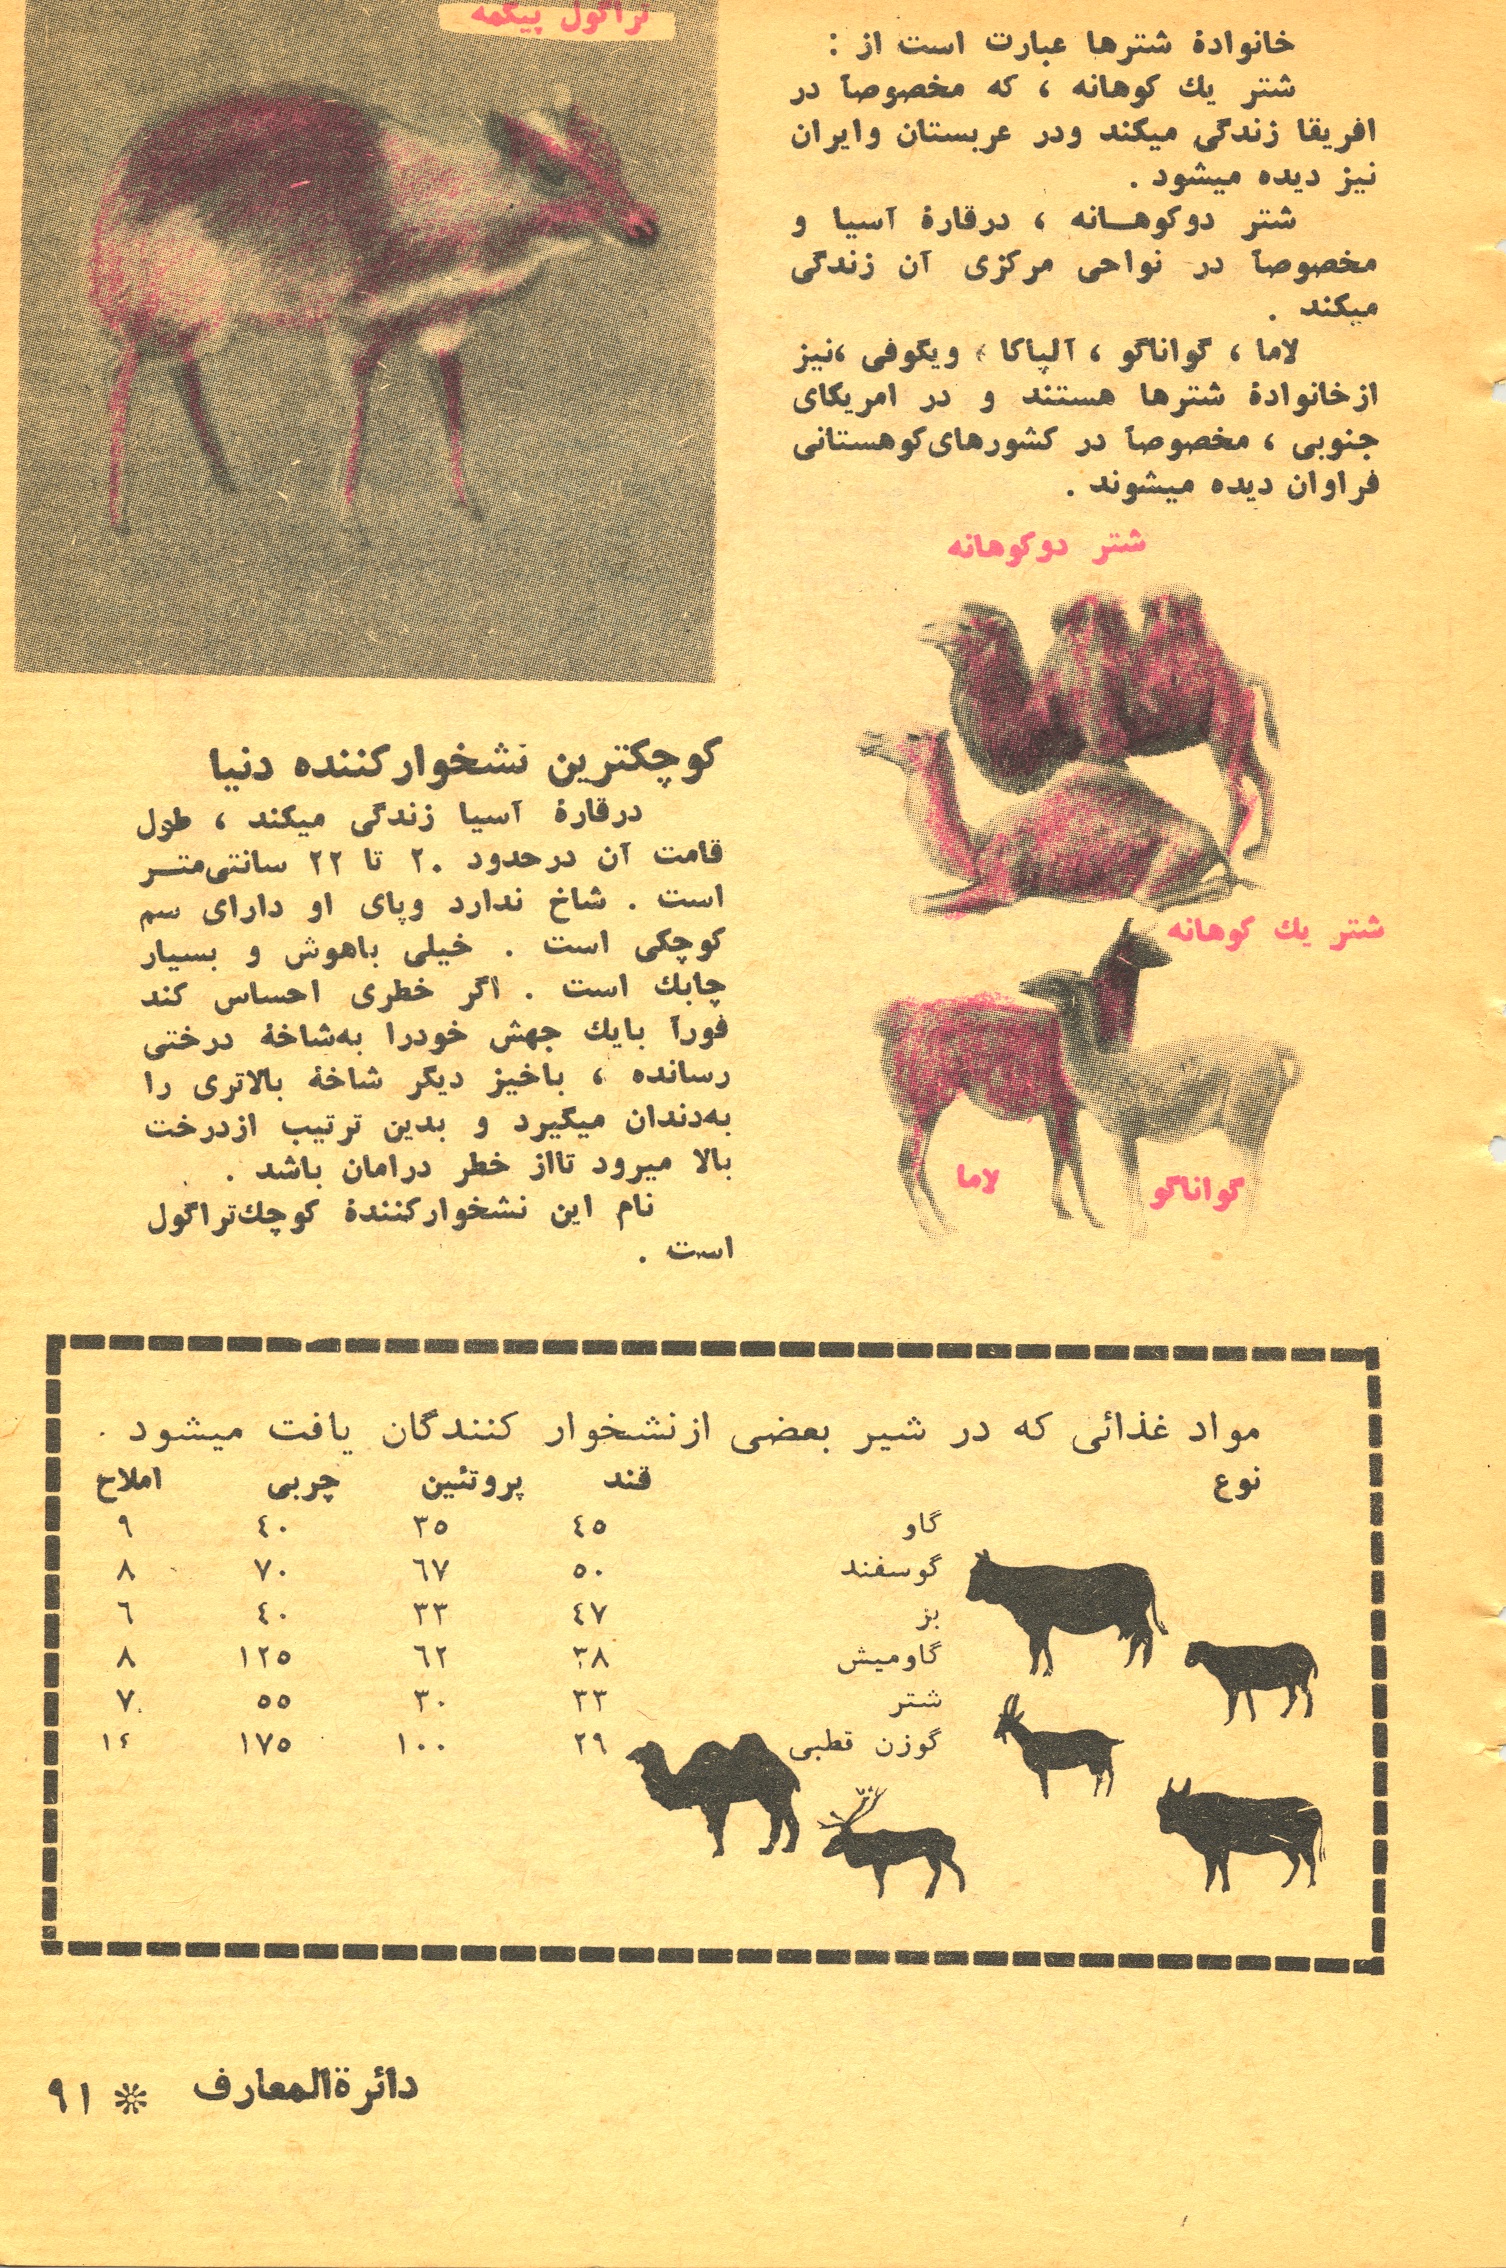 خانوادهٔ شترها عبارت است از :
شتر یك كوهانه ، كه مخصوصاً در
افریقا زندگی میكند ودر عربستان وایران
نیز دیده میشود .
شتر دوكوهـانه ، درقارهٔ آسیا و
مخصوصاً در نواحی مركزی آن زندگی
میكند .
لاما ، گواناگو ، آلپاكا ، ویگوفی ،نیز
ازخانوادهٔ شترها هستند و در امریكای
جنوبی ، مخصوصاً در كشورهای‌كوهستانی
فراوان دیده میشوند .
شتر دوكوهانه
شتر یك كوهانه
لاما
گواناگو
تراگول پیگمه
كوچكترین نشخواركننده دنیا
درقارهٔ آسیا زندگی میكند ، طول
قامت آن درحدود ۲۰ تا ۲۲ سانتی‌متـر
است . شاخ ندارد وپای او دارای سم
كوچكی است . خیلی باهوش و بسیار
چابك است . اگر خطری احساس كند
فوراً بایك جهش خودرا به‌شاخهٔ درختی
رسانده ، باخیز دیگر شاخهٔ بالاتری را
به‌دندان میگیرد و بدین ترتیب ازدرخت
بالا میرود تااز خطر درامان باشد .
نام این نشخواركنندهٔ كوچك‌تراگول
است .
مواد غذائی كه در شیر بعضی ازنشخوار كنندگان یافت میشود .
نوع قند پروتئین چربی املاح
گاو ٤٥ ٣٥ ٤٠ ٩
گوسفند ٥٠ ٦٧ ٧٠ ٨
بز ٤٧ ٣٣ ٤٠ ٦
گاومیش ٣٨ ٦٢ ١٢٥ ٨
شتر ٣٣ ٣٠ ٥٥ ٧
گوزن قطبی ٢٩ ١٠٠ ١٧٥ ١٤
دائرةالمعارف * ٩١